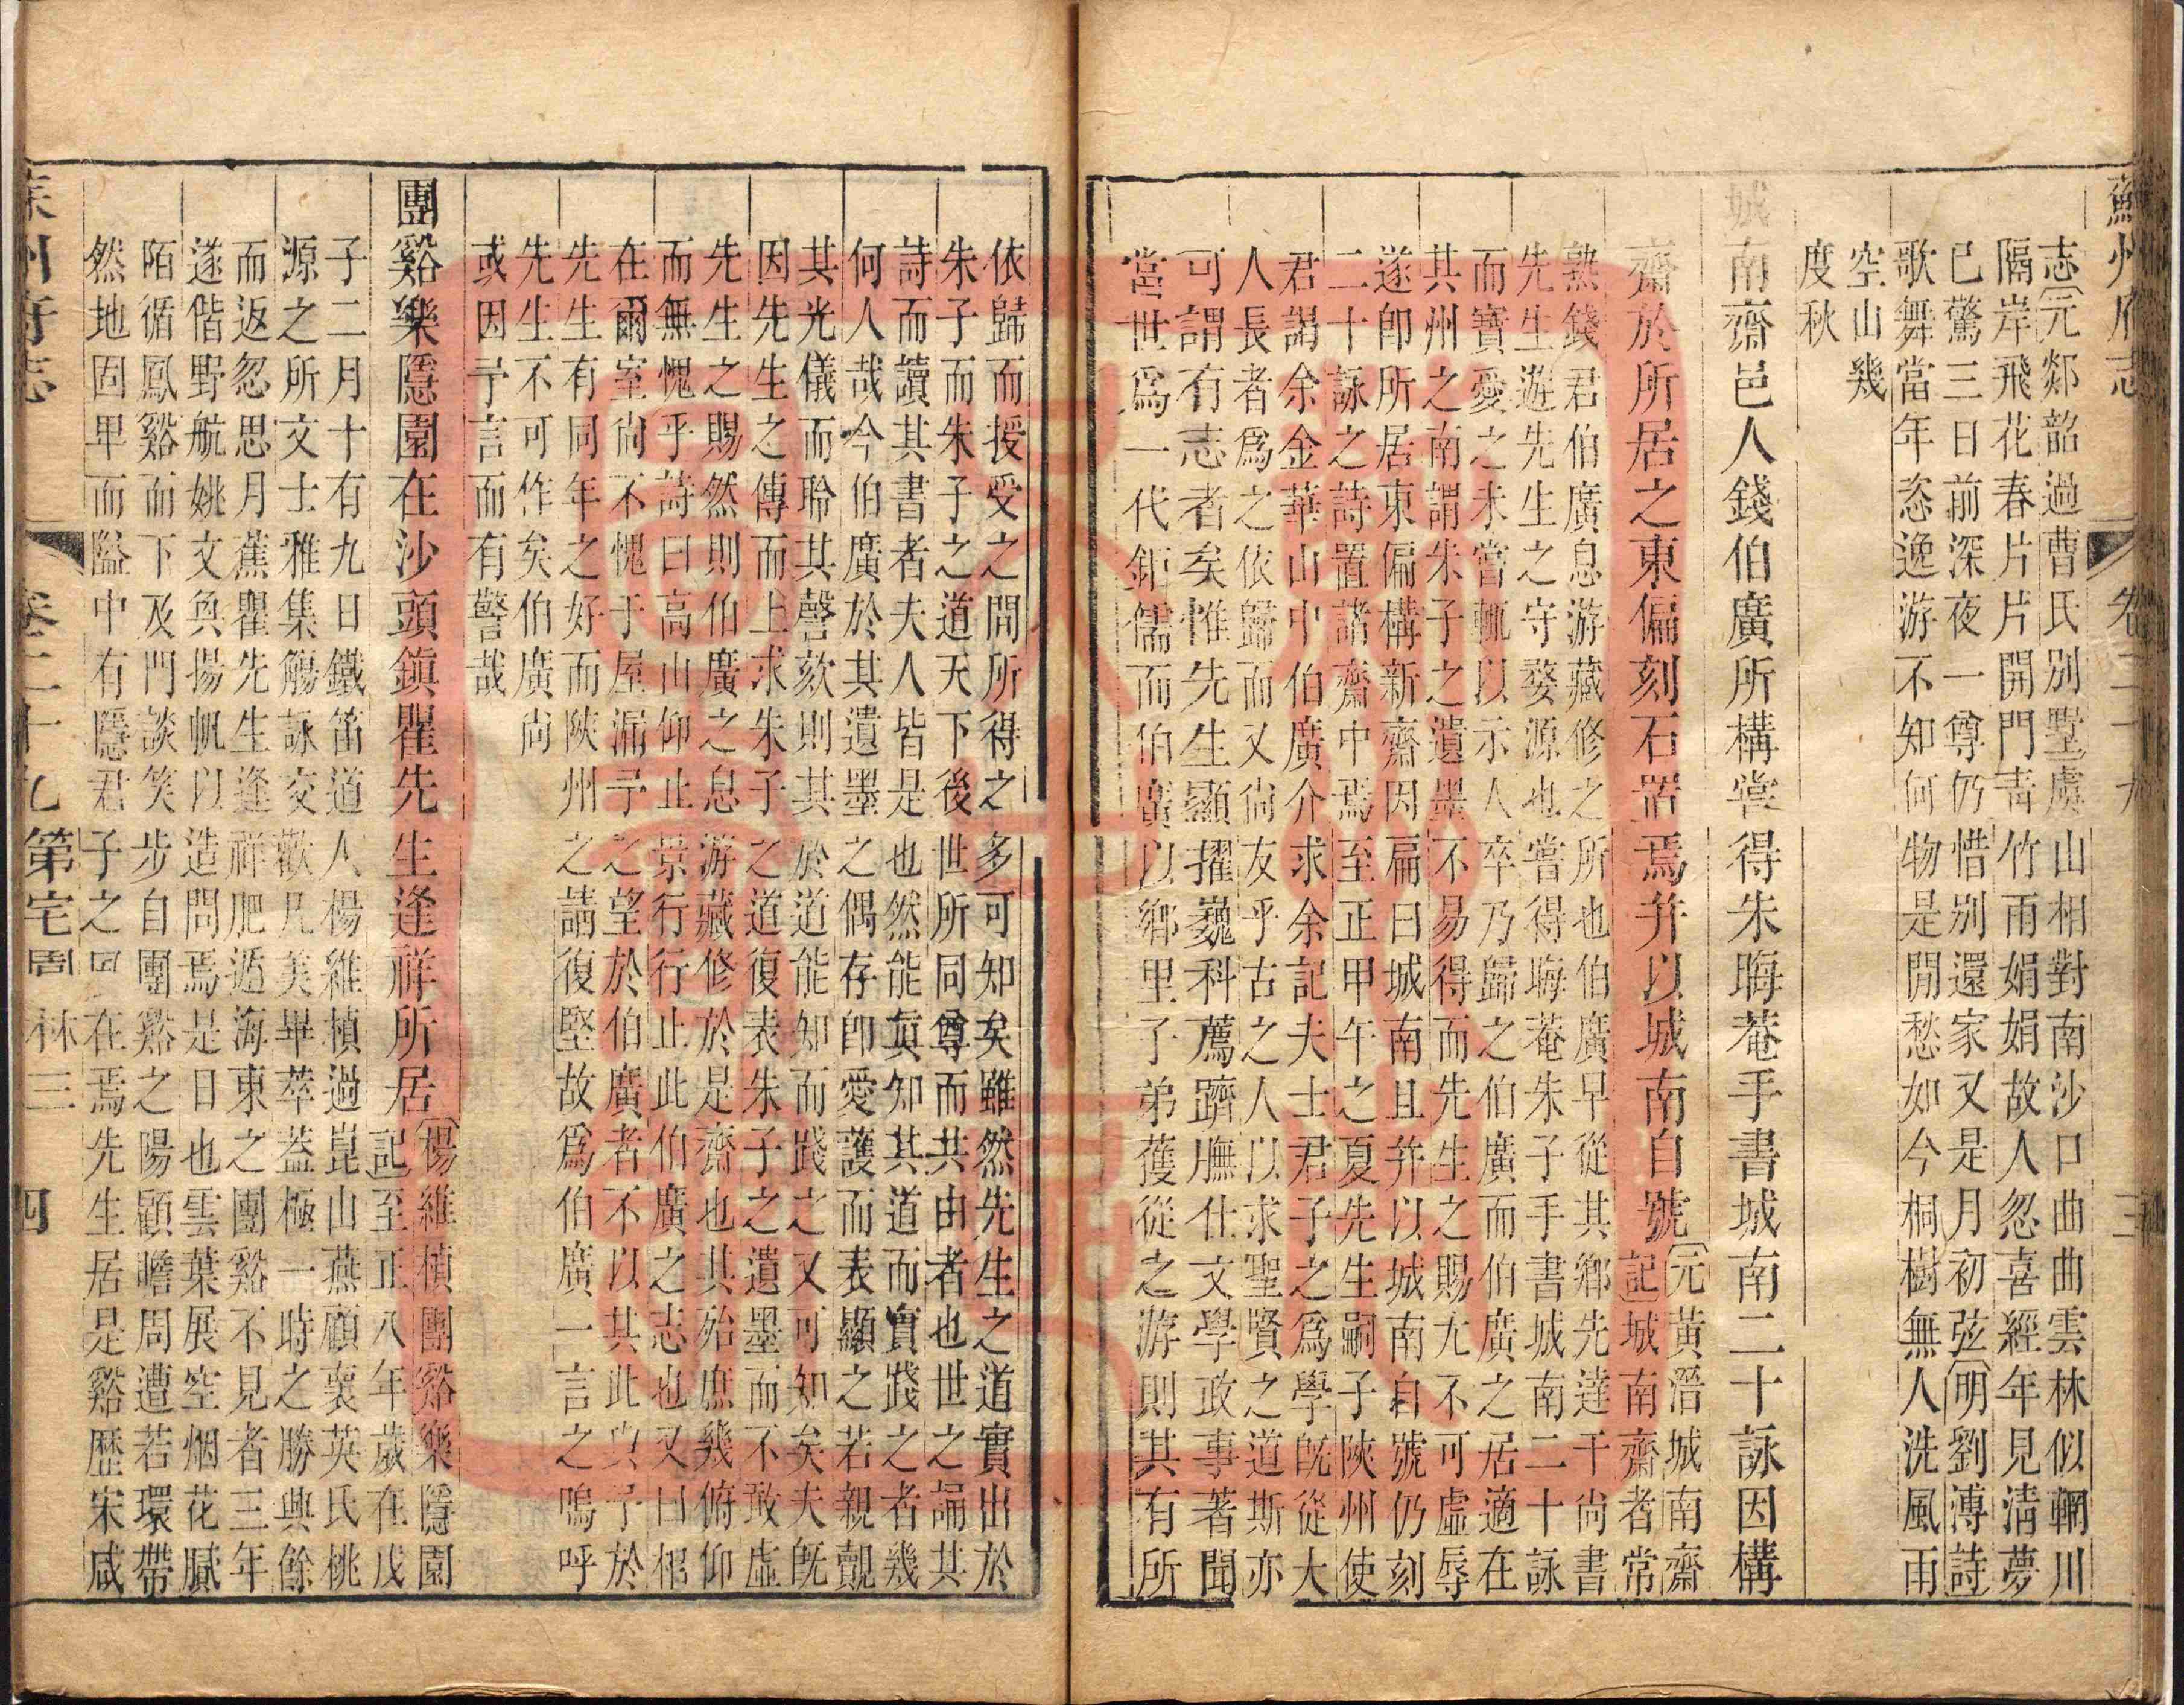 蘇州府志 卷二十九 三
志〔元郯韶過曹氏别墅虞山相對南沙口曲曲雲林似輞川
隔岸飛花春片片開門青竹雨娟娟故人忽喜經年見清夢
已驚三日前深夜一尊仍惜别還家又是月初弦〔明劉溥詩
歌舞當年恣逸游不知何物是閒愁如今桐樹無人洗風雨
空山幾
度秋
城南齋邑人錢伯廣所構嘗得朱晦菴手書城南二十詠因構
齋於所居之東偏刻石置焉并以城南自號〔元黃溍城南齋
記城南齋者常
熟錢君伯廣息游藏修之所也伯廣早從其鄉先達干尚書
先生遊先生之守婺源也嘗得晦菴朱子手書城南二十詠
而寶愛之未嘗輒以示人卒乃歸之伯廣而伯廣之居適在
其州之南謂朱子之遺墨不易得而先生之賜尢不可虛辱
遂卽所居東偏構新齋因扁曰城南且并以城南自號仍刻
二十詠之詩置諸齋中焉至正甲午之夏先生嗣子陝州使
君謁余金華山中伯廣介求余記夫士君子之爲學旣從大
人長者爲之依歸而又尙友乎古之人以求聖賢之道斯亦
可謂有志者矣惟先生顯擢巍科薦躋膴仕文學政事著聞
當世爲一代鉅儒而伯廣以鄉里子弟獲從之游則其有所
依歸而授受之間所得之多可知矣雖然先生之道實出於
朱子而朱子之道天下後世所同尊而共由者也世之誦其
詩而讀其書者夫人皆是也然能眞知其道而實踐之者幾
何人哉今伯廣於其遺墨之偶存卽愛護而表顯之若親覿
其光儀而聆其謦欬則其於道能知而踐之又可知矣夫旣
因先生之傳而上求朱子之道復表朱子之遺墨而不敢虛
先生之賜然則伯廣之息游藏修於是齋也其殆庶幾俯仰
而無愧乎詩曰高山仰止景行行止此伯廣之志也又曰相
在爾室尙不愧于屋漏予之望於伯廣者不以其此與予於
先生有同年之好而陝州之請復堅故爲伯廣一言之嗚呼
先生不可作矣伯廣尙
或因予言而有警哉
團谿樂隱園在沙頭鎭瞿先生逢祥所居〔楊維楨團谿樂隱園
記至正八年歲在戊
子二月十有九日鐵笛道人楊維楨過崑山燕顧衷英氏桃
源之所文士雅集觴詠交歡凡美畢萃葢極一時之勝興餘
而返忽思月蕉瞿先生逢祥肥遁海東之團谿不見者三年
遂偕野航姚文奐揚帆以造問焉是日也雲葉展空烟花膩
陌循鳳谿而下及門談笑步自團谿之陽顧瞻周遭若環帶
然地固卑而隘中有隱君子之回在焉先生居是谿歷宋咸
蘇州府志 卷二十九 第宅園林三 四